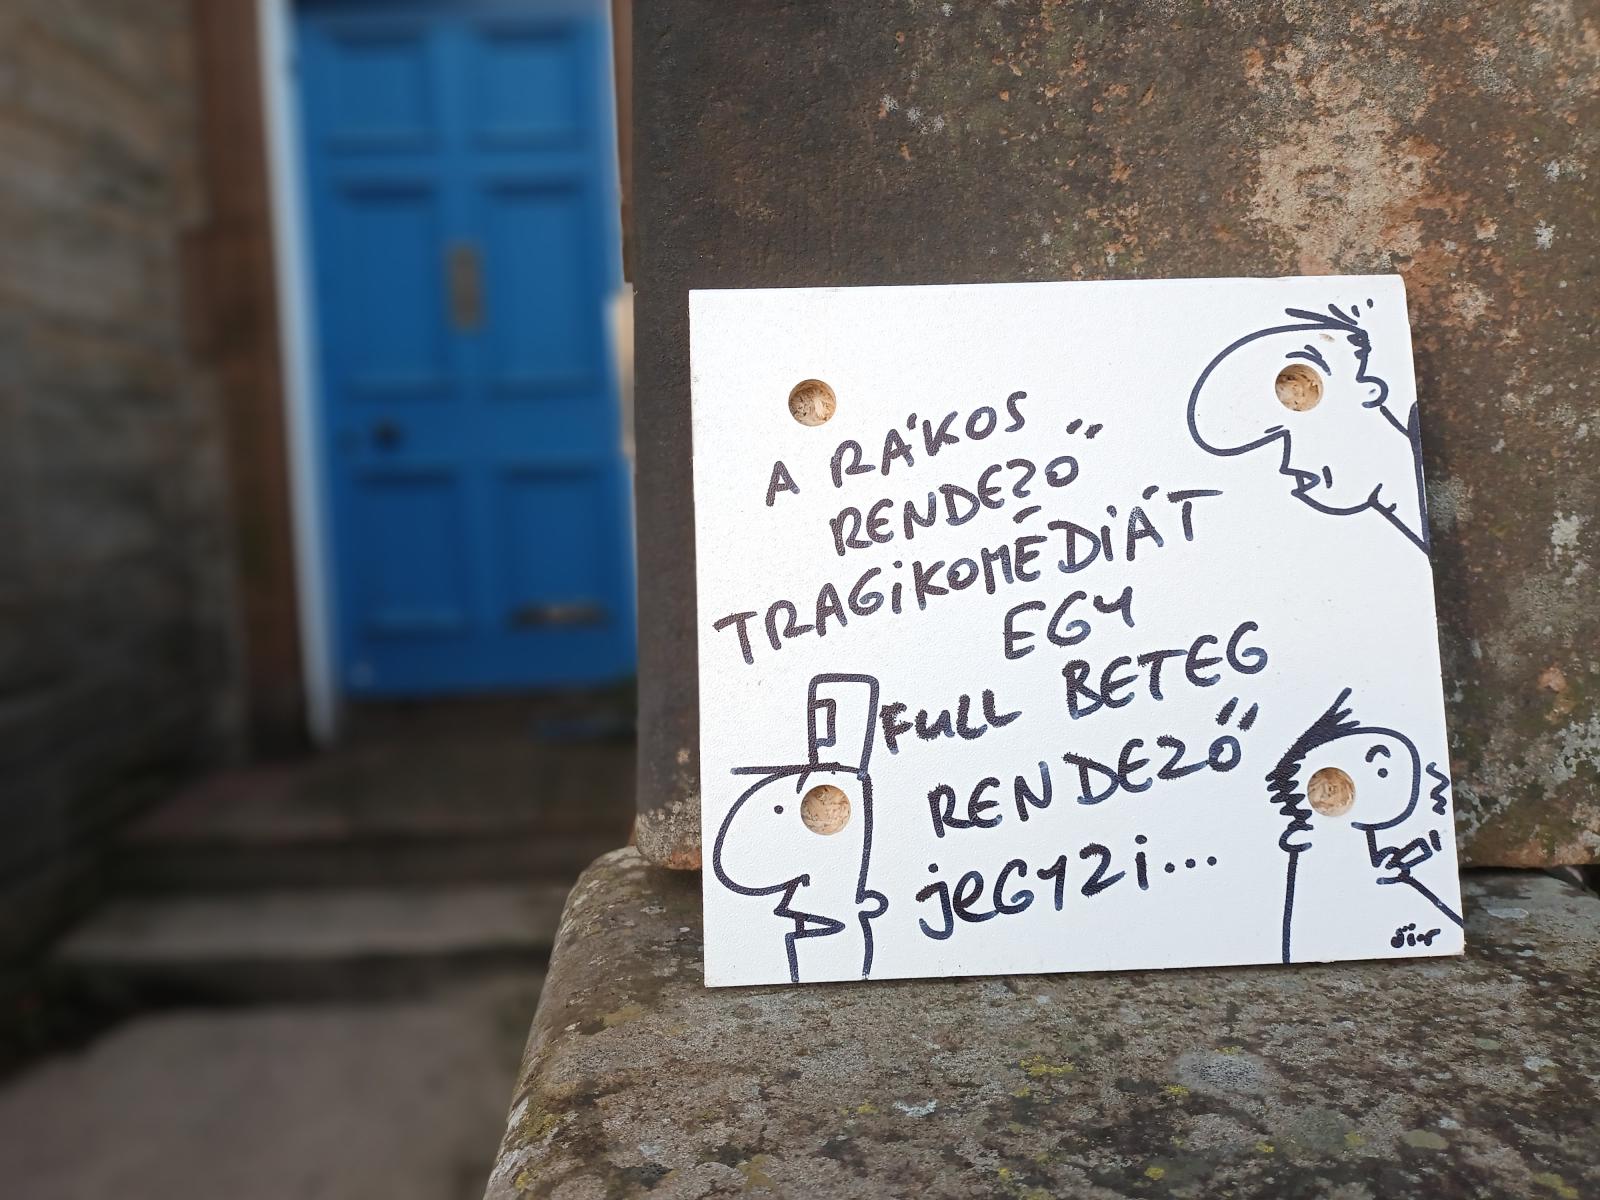 A RÁKOS
RENDEZŐ
TRAGiKOMÉDiÁT
EGY
FULL BETEG
RENDEZŐ
jEGYZi...